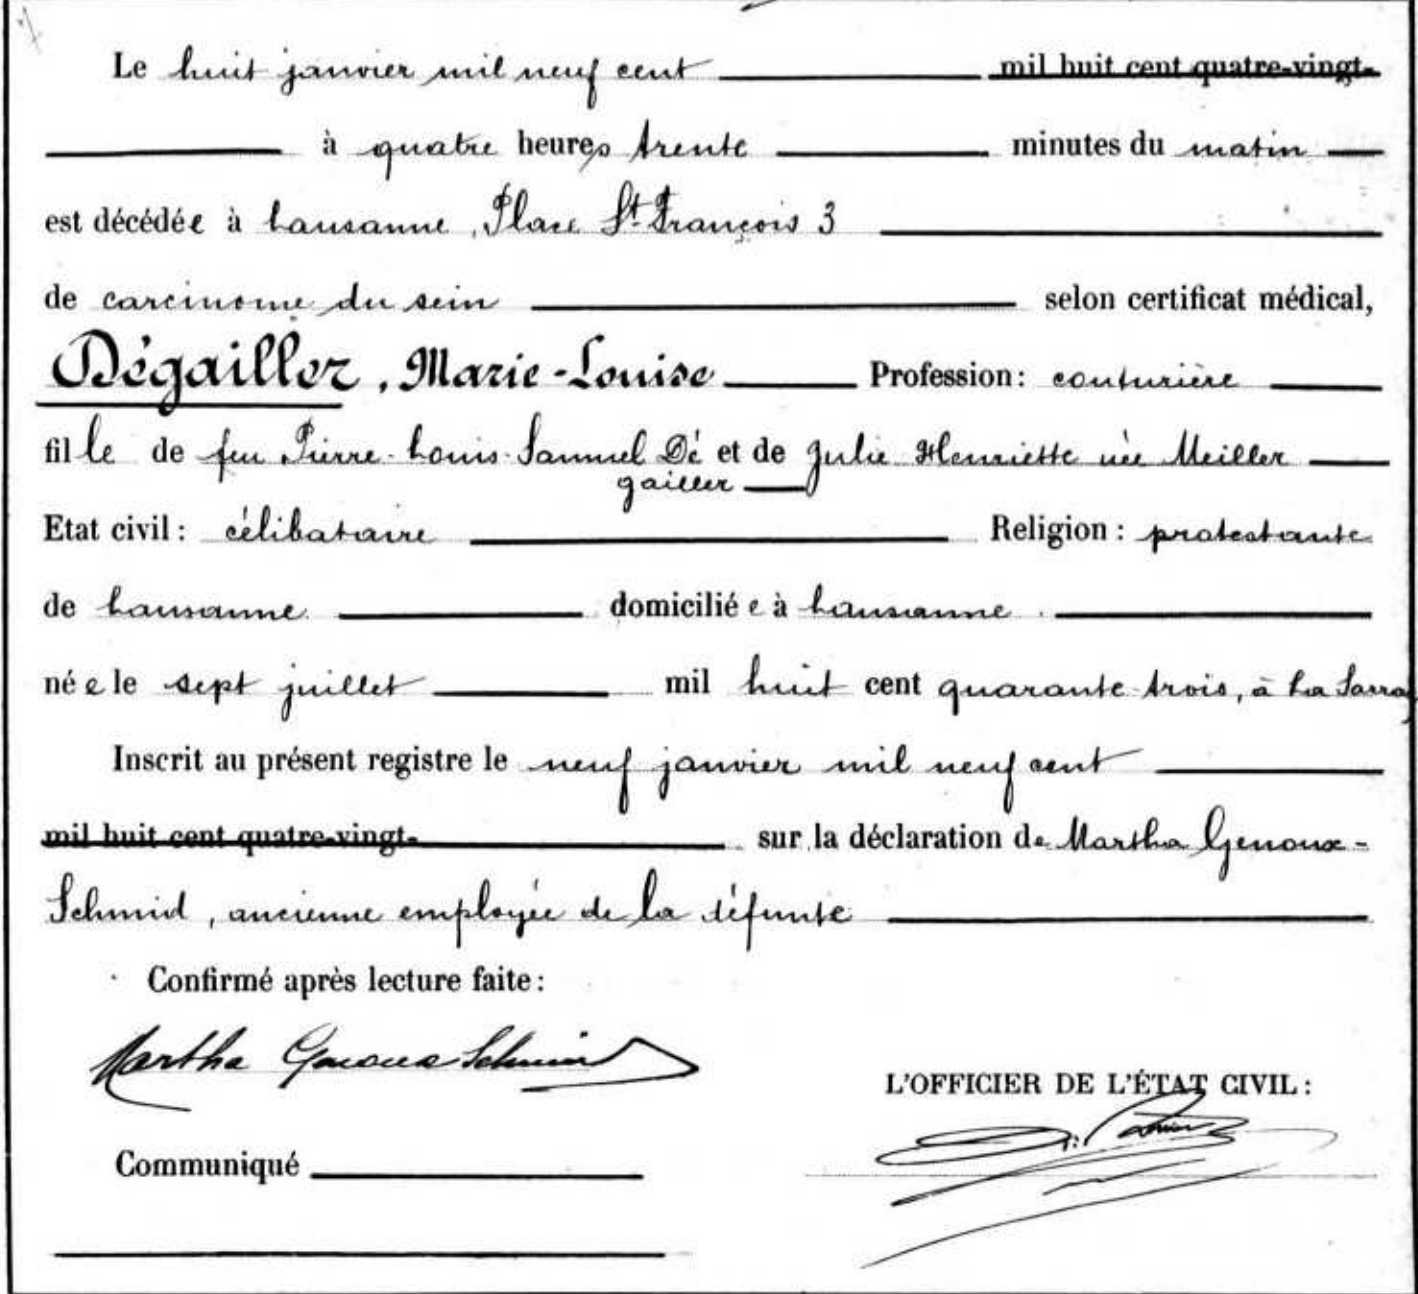 Le huit janvier mil neuf cent mil huit cent quatre-vingt-
à quatre heures trente minutes du matin
est décédée à Lausanne, Place St. François 3
de carcinome du sein selon certificat médical,
Dégailler, Marie-Louise Profession: couturière
fille de feu Pierre-Louis-Samuel Dé et de Julie Henriette née Meiller
gailler
Etat civil: célibataire Religion: protestante
de Lausanne domiciliée à Lausanne.
née le sept juillet mil huit cent quarante trois, à La Sarraz
Inscrit au présent registre le neuf janvier mil neuf cent
mil huit cent quatre-vingt- sur la déclaration de Martha Genoux-
Schmid, ancienne employée de la défunte
Confirmé après lecture faite:
Martha Genoux Schmid
L'OFFICIER DE L'ÉTAT CIVIL:
Communiqué